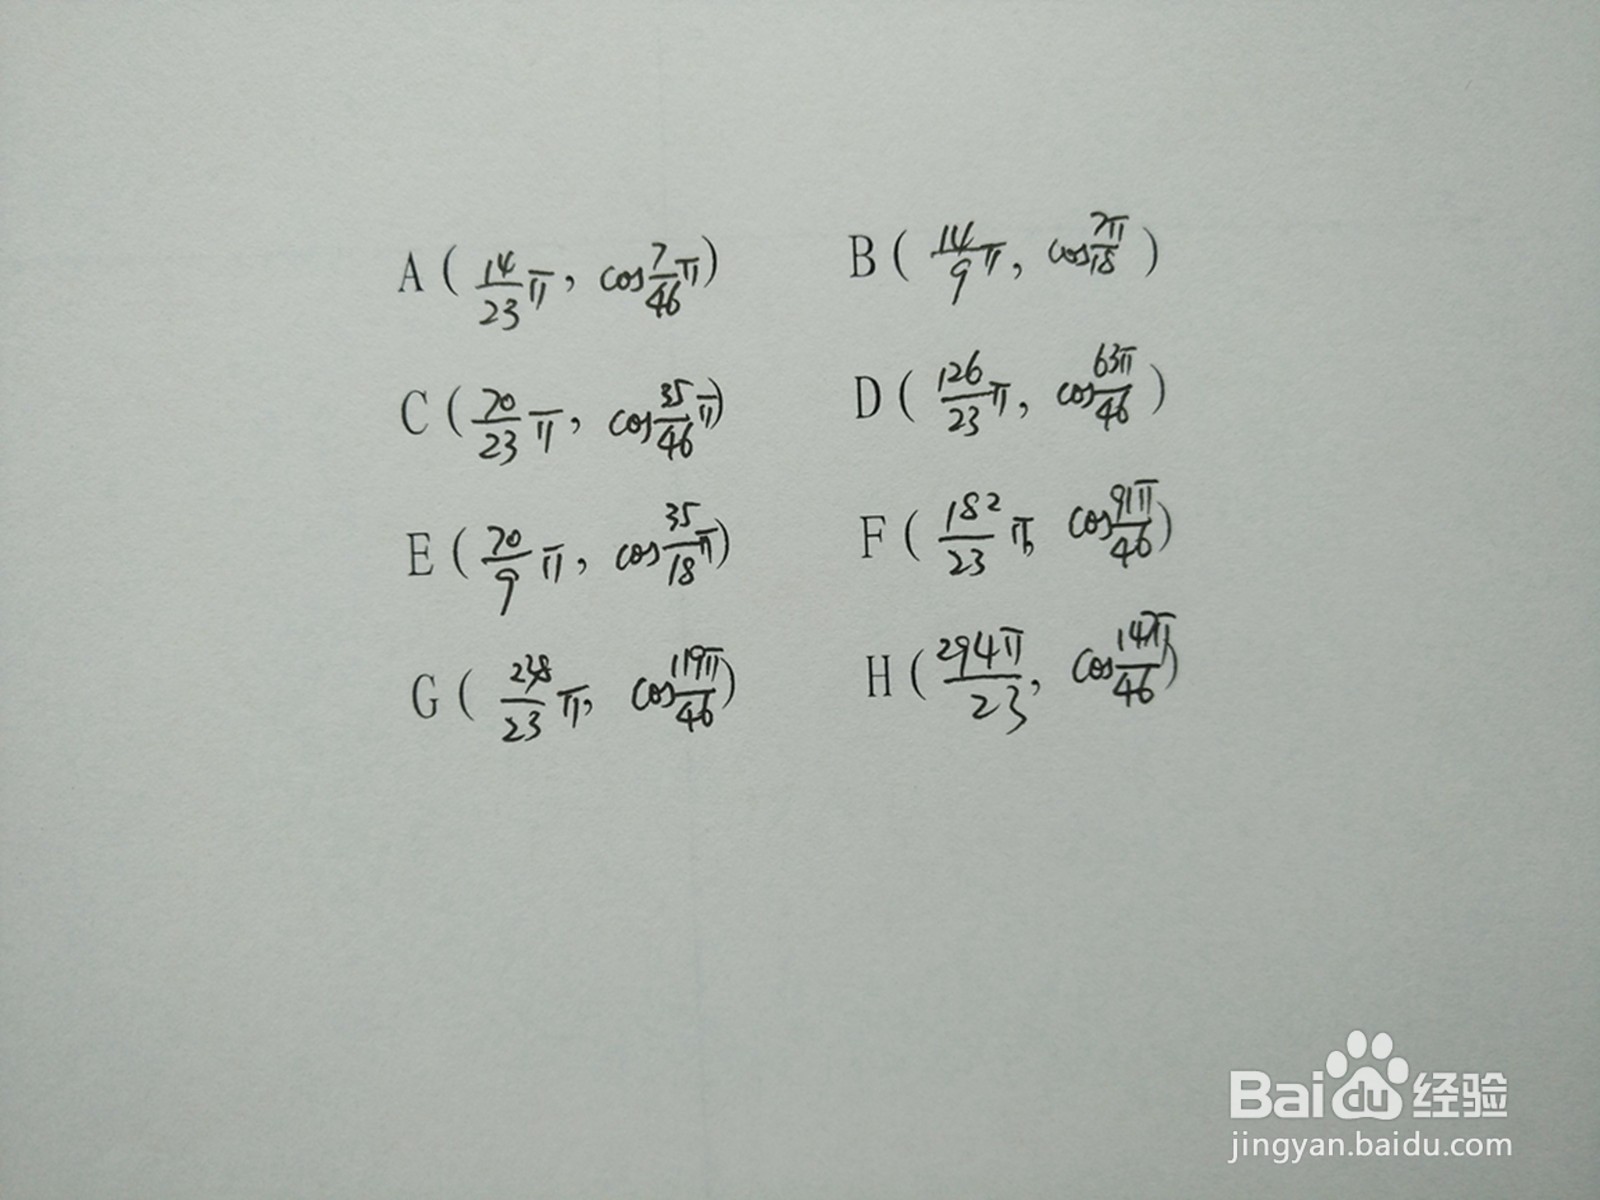 A ( 14/23 π, cos 7/46 π) B ( 14/9 π, cos 7π/18 )
C ( 70/23 π, cos 35/46 π) D ( 126/23 π, cos 63π/46 )
E ( 70/9 π, cos 35/18 π) F ( 182/23 π, cos 91π/46 )
G ( 238/23 π, cos 119π/46 ) H ( 294π/23, cos 147π/46 )
Baidu 经验
jingyan.baidu.com